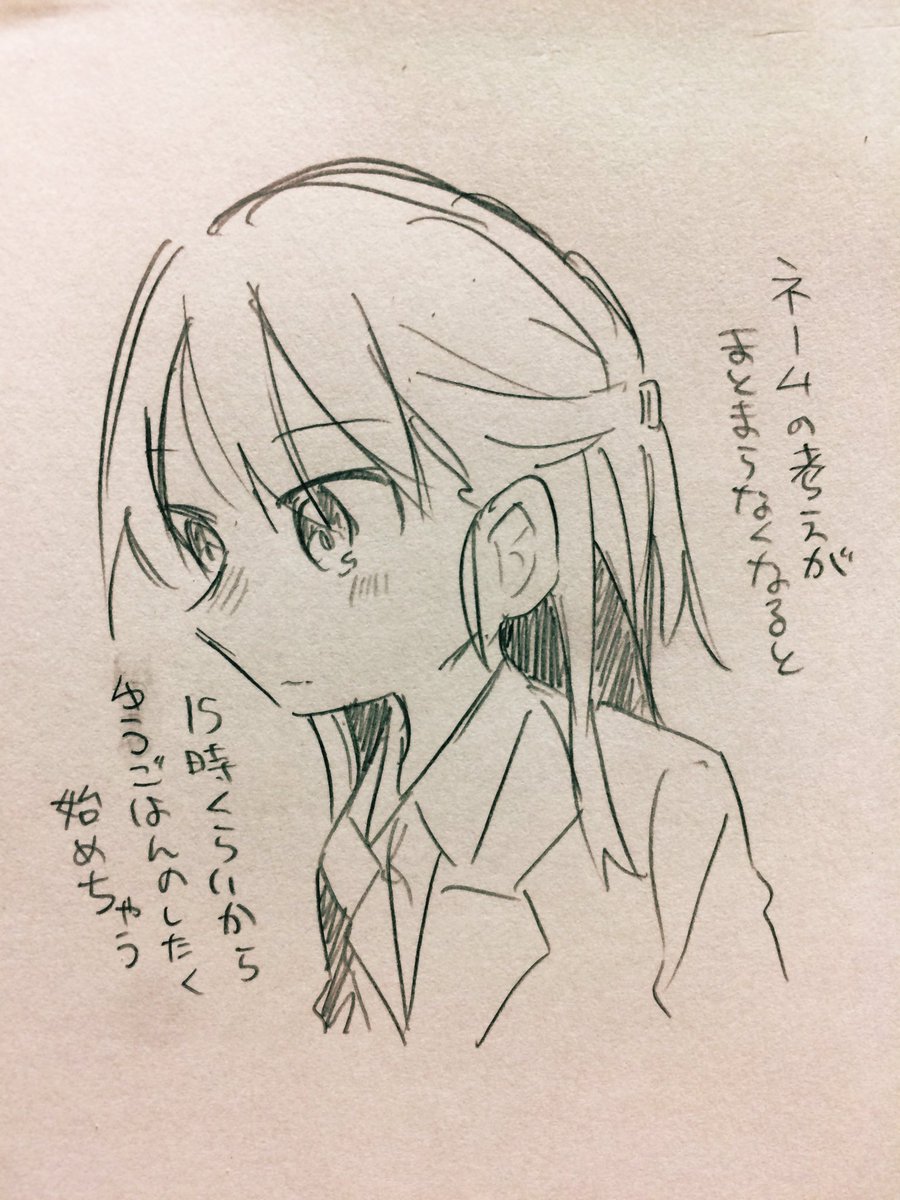 ネームの考えが
まとまらなくなると
15時くらいから
ゆうごはんのしたく
始めちゃう